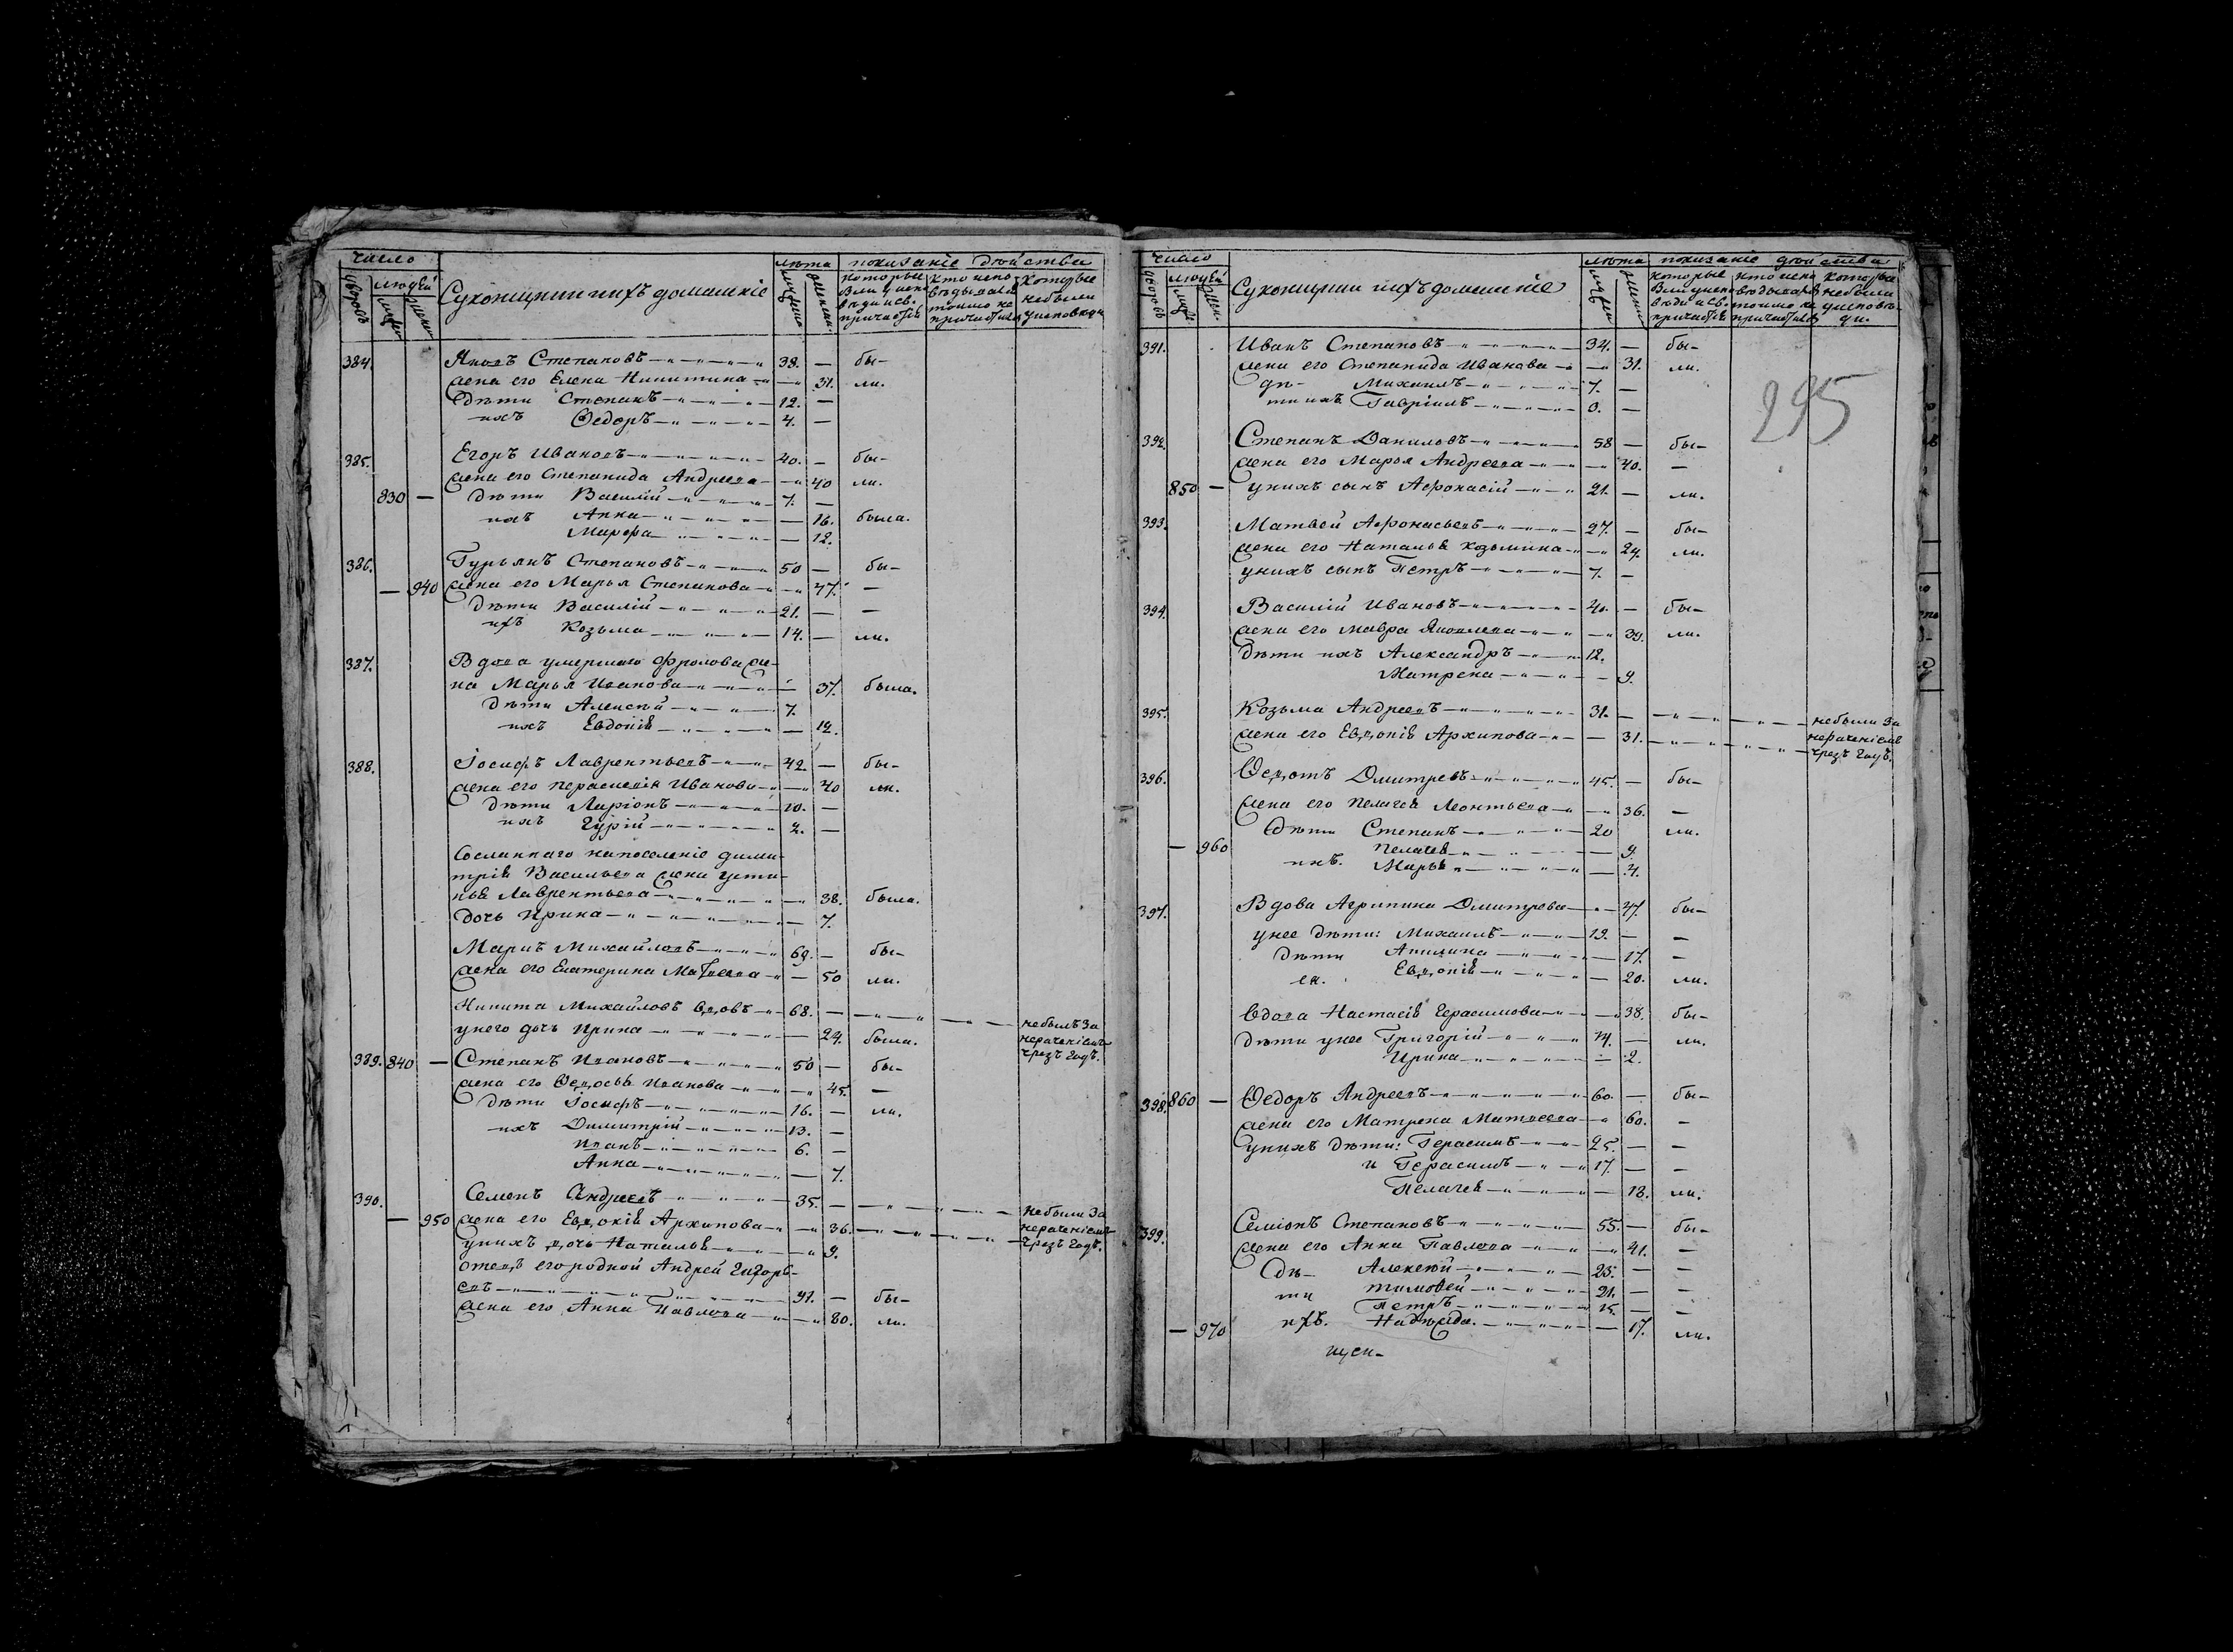 число
людей
дворовъ
мужес.
женс.
Сухонщики ихъ домашніе
лѣта
мужеска
женска.
показаніе дѣйства
которые были у исповѣди и св. причастія
кто исповѣдывался только не причастился
Которые небыли уисповѣди
384. Яковъ Степановъ 38. — бы-
жена его Елена Никитина — 31. ли.
дѣти Степанъ 12. —
ихъ Ѳедоръ 4. —
385. Егоръ Ивановъ 40. — бы-
жена его Степанида Андреева — 40 ли.
830 — дѣти Василій 7. —
ихъ Анна — 16. была.
Марфа — 12.
386. Гурьянъ Степановъ 50 — бы-
— 940 жена его Марья Степанова — 47. —
дѣти Василій 21. — —
ихъ Козьма 14. — ли.
387. Вдова умершаго Фролова же-
на Марья Иванова — 37. была.
дѣти Алексѣй 7.
ихъ Евдокія — 12.
388. Іосифъ Лаврентьевъ 42. — бы-
жена его Пераскевія Иванова — 40 ли.
дѣти Ларіонъ 10. —
ихъ Гурій 2. —
Сосланнаго напоселеніе дими-
трія Васильева жена усти-
нья Лаврентьева — 38. была.
дочь Ирина — 7.
Маркъ Михайловъ 69. — бы-
жена его Екатерина Матвеева — 50 ли.
Никита Михайловъ вдовъ 68. — небылъ за
унего дочь Ирина — 24. была. нераченіемъ
чрезъ годъ.
389. 840 — Степанъ Ивановъ 50 — бы-
жена его Ѳедосья Иванова — 45. —
дѣти Іосифъ 16. — ли.
ихъ Димитрій 13. —
Иванъ 6. —
Анна — 7.
390. Семенъ Андреевъ 35. — небыли за
— 950 жена его Евдокія Архипова — 36. нераченіемъ
унихъ дочь Наталья 9. чрезъ годъ.
отецъ егородной Андрей Григорь-
евъ 91. — бы-
жена его Анна Павлова — 80. ли.
число
людей
дворовъ
мужес.
жен.
Сухонщики ихъ домашніе
лѣта
мужеска
женска
показаніе дѣйства
которые были у исповѣди и св. причастія
кто исповѣдывался только не причастился
Которые небыли уисповѣди.
295
391. Иванъ Степановъ 34. — бы-
жена его Степанида Иванова — 31. ли.
дѣ- Михаилъ 7. —
ти ихъ Гавріилъ 0. —
392. Степанъ Даниловъ 58 — бы-
жена его Марья Андреева — 40. —
850 — унихъ сынъ Афонасій 21. — ли.
393. Матвей Афонасьевъ 27. — бы-
жена его Наталья Козьмина — 24. ли.
унихъ сынъ Петръ 7. —
394. Василій Ивановъ 40. — бы-
жена его Мавра Яковлева — 39. ли.
дѣти ихъ Александръ 12.
Матрена — 9.
395. Козьма Андреевъ 31. — небыли за
жена его Евдокія Архипова — 31. нераченіемъ
чрезъ годъ.
396. Ѳедотъ Дмитревъ 45. — бы-
жена его Пелагея Леонтьева — 36. —
дѣти Степанъ 20 ли.
— 960 Пелагея — 9.
ихъ. Марья — 4.
397. Вдова Агрипина Дмитрева — 47. бы-
унее дѣти: Михаилъ 19. — —
дѣти Акилина — 17. —
ея. Евдокія — 20. ли.
Вдова Настасія Герасимова — 38. бы-
дѣти унее Григорій 14. — ли.
Ирина — 2.
398. 860 — Ѳедоръ Андреевъ 60. — бы-
жена его Матрена Матвеева 60. —
унихъ дѣти: Герасимъ 25. — —
и Герасимъ 17. — —
Пелагея — 18. ли.
399. Семіонъ Степановъ 55. — бы-
жена его Анна Павлова — 41. —
дѣ- Алексѣй 25. — —
ти Тимофей 21. — —
Петръ 15. — —
— 970 ихъ. Надежда. — 17. ли.